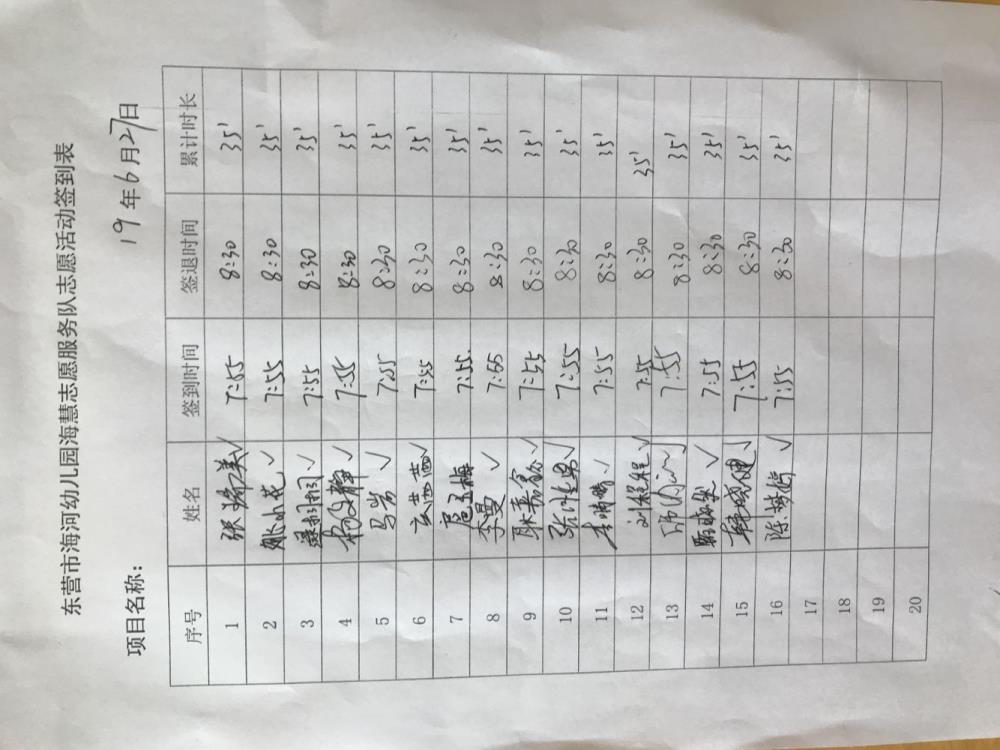 东营市海河幼儿园海慧志愿服务队志愿活动签到表
项目名称： 19年6月27日
序号 姓名 签到时间 签退时间 累计时长
1 7:55 8:30 35'
2 姚小花 7:55 8:30 35'
3 7:55 8:30 35'
4 杨文静 7:55 8:30 35'
5 马岩 7:55 8:30 35'
6 7:55 8:30 35'
7 扈玉梅 7:55 8:30 35'
8 李曼 7:55 8:30 35'
9 7:55 8:30 35'
10 7:55 8:30 35'
11 7:55 8:30 35'
12 7:55 8:30 35'
13 7:55 8:30 35'
14 7:55 8:30 35'
15 7:55 8:30 35'
16 陈梦婷 7:55 8:30 35'
17
18
19
20